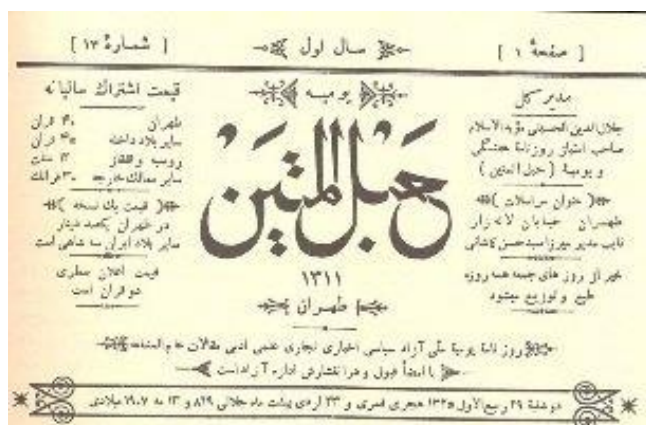 [ صفحهٔ ۱ ]
سال اول
[ شمارهٔ ۱۳ ]
مدیر کل
جلال الدین الحسینی مؤید الاسلام
صاحب امتیاز روزنامهٔ هفتگی
و یومیهٔ ( حبل المتین )
( عنوان مراسلات )
طهران خیابان لاله زار
نایب مدیر میرزا سید حسن کاشانی
غیر از روز های جمعه همه روزه
طبع و توزیع میشود
یومیه
حبل المتین
۱۳۱۱
طهران
قیمت اشتراك سالیانه
طهران ۴۰ قران
سایر بلاد داخله ۴۵ قران
روسیه و قفقاز منات
سایر ممالك خارجه ۳۰ فرانك
( قیمت یك نسخه )
در طهران یکصد دینار
سایر بلاد ایران سه شاهی است
قیمت اعلان سطری
دو قران است
روزنامهٔ یومیهٔ ملی آزاد سیاسی اخباری تجاری علمی ادبی مقالات عام المنفعه
با امضا قبول و در انتشارش اداره آزاد است
دوشنبهٔ ۲۹ ربیع الاول ۱۳۲۵ هجری قمری و ۲۳ اردی بهشت ماه جلالی ۸۲۹ و ۱۳ مه ۱۹۰۷ میلادی